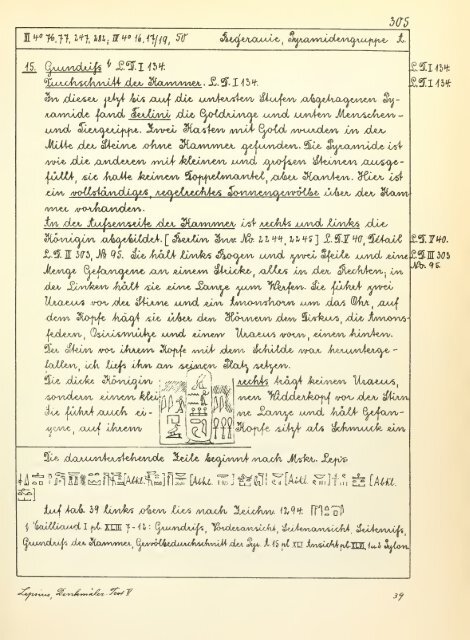 305
Begerauie, Pyramidengruppe A.
15. Grundriſs § L.D. I 134. L.D. I 134.
Durchschnitt der Kammer. L.D. I 134. L.D. I 134.
In dieser jetzt bis auf die untersten Stufen abgetragenen Py-
ramide fand Ferlini die Goldringe und unten Menschen-
und Tiergerippe. Zwei Kasten mit Gold wurden in der
Mitte der Steine ohne Kammer gefunden. Die Pyramide ist
wie die anderen mit kleinen und groſsen Steinen ausge-
füllt, sie hatte keinen Doppelmantel, aber Kanten. Hier ist
ein vollständiges, regelrechtes Tonnengewölbe über der Kam
mer vorhanden.
An der Auſsenseite der Kammer ist rechts und links die
Königin abgebildet. [Berlin Inv. No. 2244, 2245] L.D. V 40, Detail L.D. V 40.
L.D. III 303, № 95. Sie hält links Bogen und zwei Pfeile und eine L.D. III 303
Menge Gefangene an einem Stricke, alles in der Rechten; in No. 95.
der Linken hält sie eine Lanze zum Werfen. Sie führt zwei
Uraeus vor der Stirne und ein Amonshorn um das Ohr, auf
dem Kopfe trägt sie über den Hörnern den Diskus, die Amons-
federn, Osirismütze und einem Uraeus vorn, einen hinten.
Der Stein vor ihrem Kopfe mit dem Schilde war herunterge-
fallen, ich lieſs ihn an seinen Platz setzen.
Die dicke Königin rechts trägt keinen Uraeus,
sondern einen klei nen Widderkopf vor der Stirn
die führt auch ei- ne Lanze und hält Gefan-
gene, auf ihrem Kopfe sitzt als Schmuck ein
Die darunterstehende Zeile beginnt nach Mskr. Leps
Auf tab. 39 links oben lies nach Zeichn. 1294
§ Cailliaud I pl. XLIII 7-12: Grundriſs, Vorderansicht, Seitenansicht, Seitenriſs,
Grundriſs der Kammer, Gewölbedurchschnitt der Pyr. A 15
Lepsius, Denkmäler. Text V 39